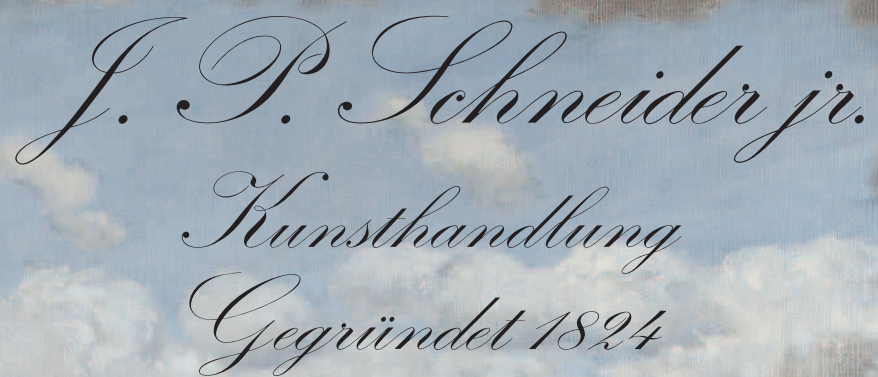 J. P. Schneider jr.
Kunsthandlung
Gegründet 1824